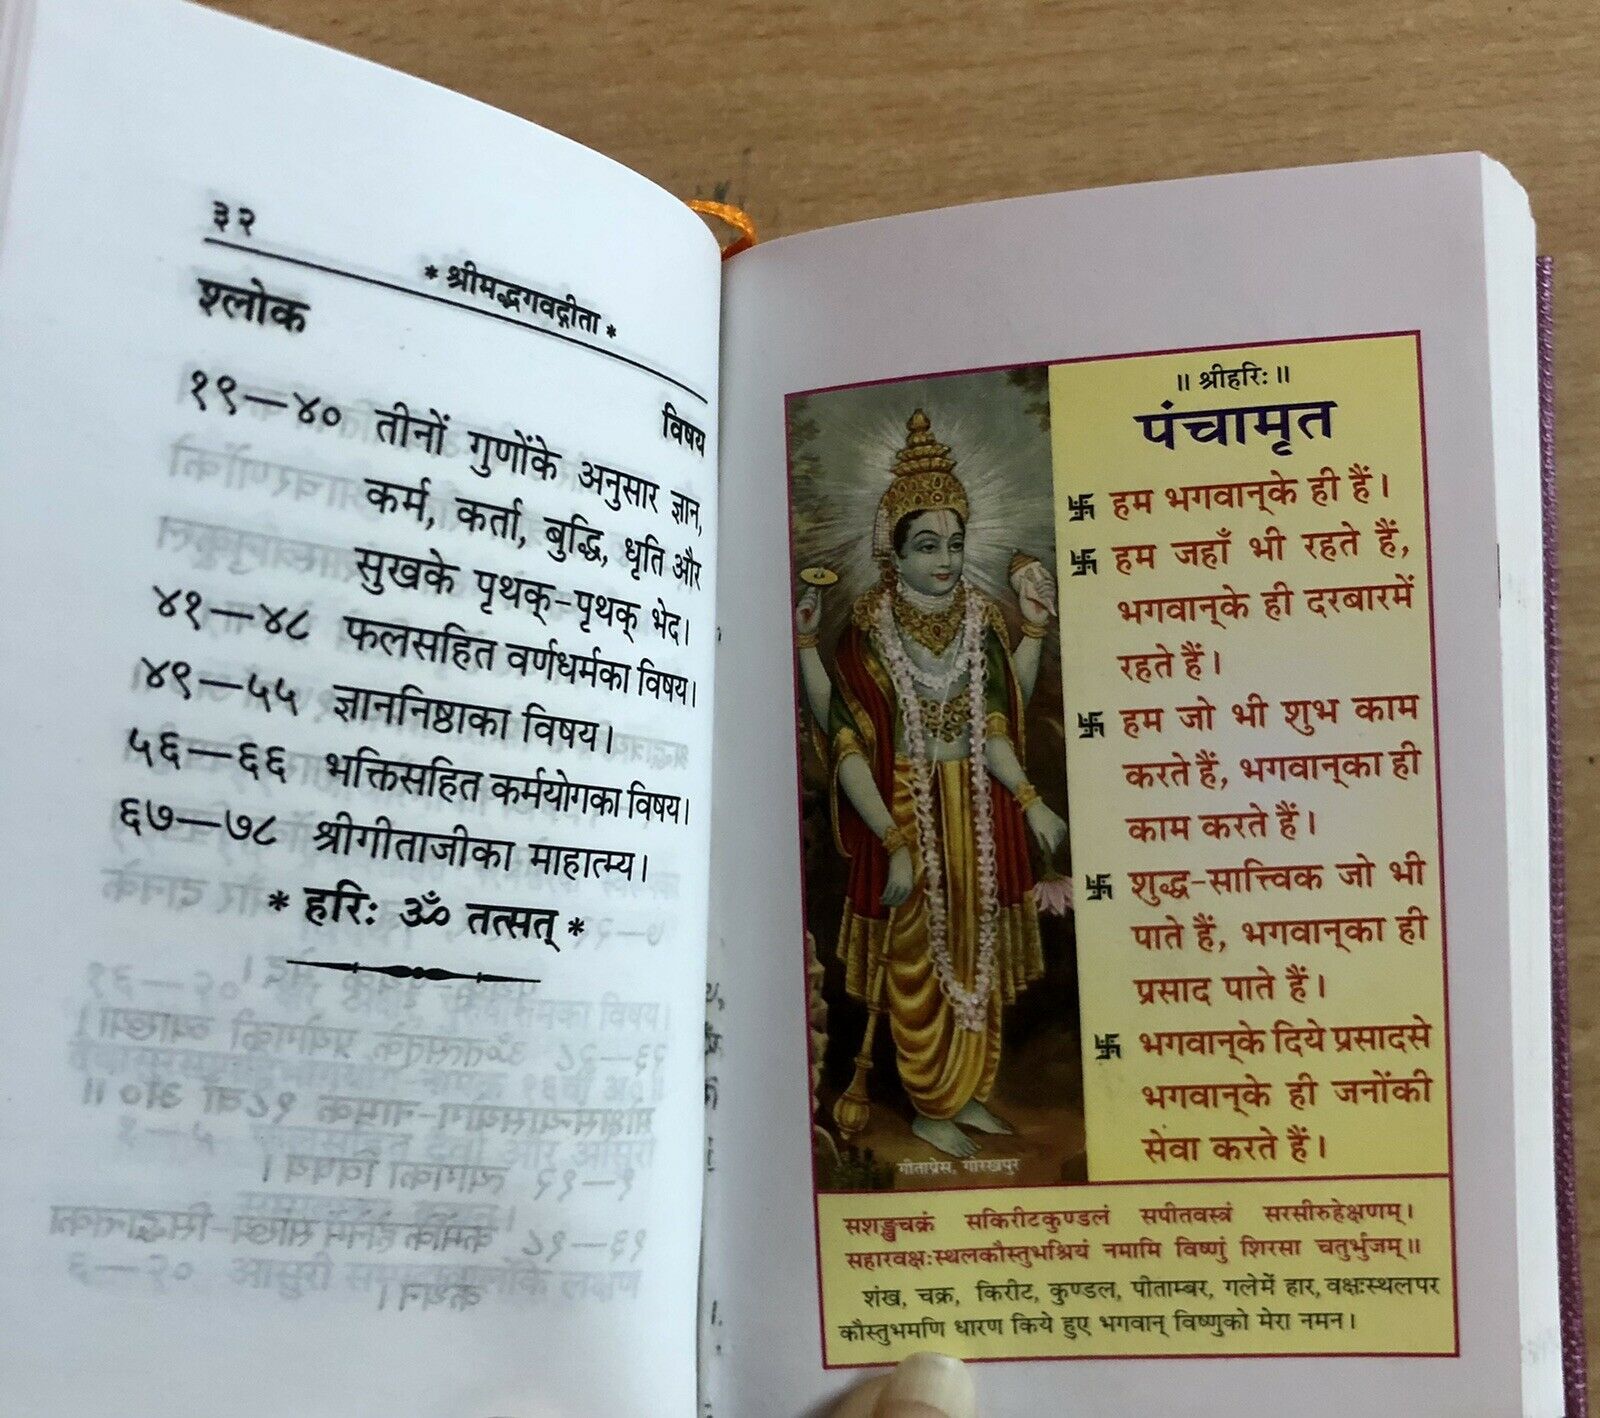 ३२
* श्रीमद्भगवद्गीता *
श्लोक
विषय
१९—४० तीनों गुणोंके अनुसार ज्ञान,
कर्म, कर्ता, बुद्धि, धृति और
सुखके पृथक्-पृथक् भेद।
४१—४८ फलसहित वर्णधर्मका विषय।
४९—५५ ज्ञाननिष्ठाका विषय।
५६—६६ भक्तिसहित कर्मयोगका विषय।
६७—७८ श्रीगीताजीका माहात्म्य।
* हरिः ॐ तत्सत् *
॥ श्रीहरिः ॥
पंचामृत
卐 हम भगवान्‌के ही हैं।
卐 हम जहाँ भी रहते हैं,
भगवान्‌के ही दरबारमें
रहते हैं।
卐 हम जो भी शुभ काम
करते हैं, भगवान्‌का ही
काम करते हैं।
卐 शुद्ध-सात्त्विक जो भी
पाते हैं, भगवान्‌का ही
प्रसाद पाते हैं।
卐 भगवान्‌के दिये प्रसादसे
भगवान्‌के ही जनोंकी
सेवा करते हैं।
गीताप्रेस, गोरखपुर
सशङ्खचक्रं सकिरीटकुण्डलं सपीतवस्त्रं सरसीरुहेक्षणम्।
सहारवक्षःस्थलकौस्तुभश्रियं नमामि विष्णुं शिरसा चतुर्भुजम्॥
शंख, चक्र, किरीट, कुण्डल, पीताम्बर, गलेमें हार, वक्षःस्थलपर
कौस्तुभमणि धारण किये हुए भगवान् विष्णुको मेरा नमन।